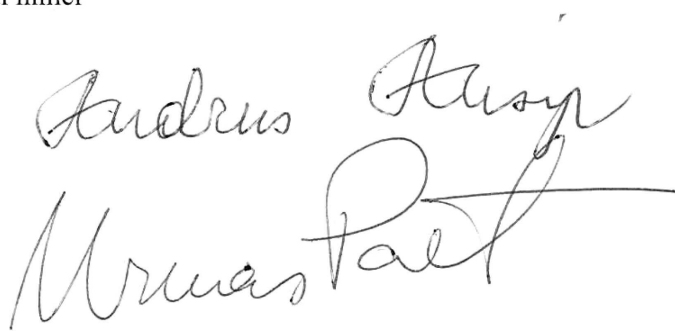 Andrus Ansip
Urmas Paet